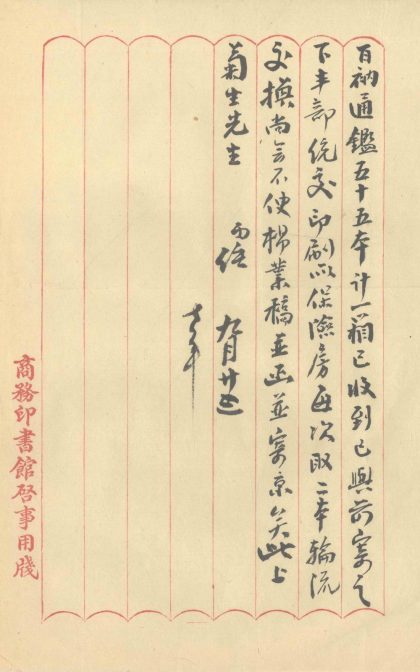 百衲通鑑五十五本計一箱已收到已與前寄之
下半部統交印刷所保險房每次取二本輪流
交換尚無不便楊業稿並函並寄京矣此上
菊生先生
九月廿五
商務印書館啓事用牋